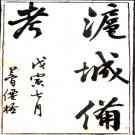 滬城備
考
戊寅七月